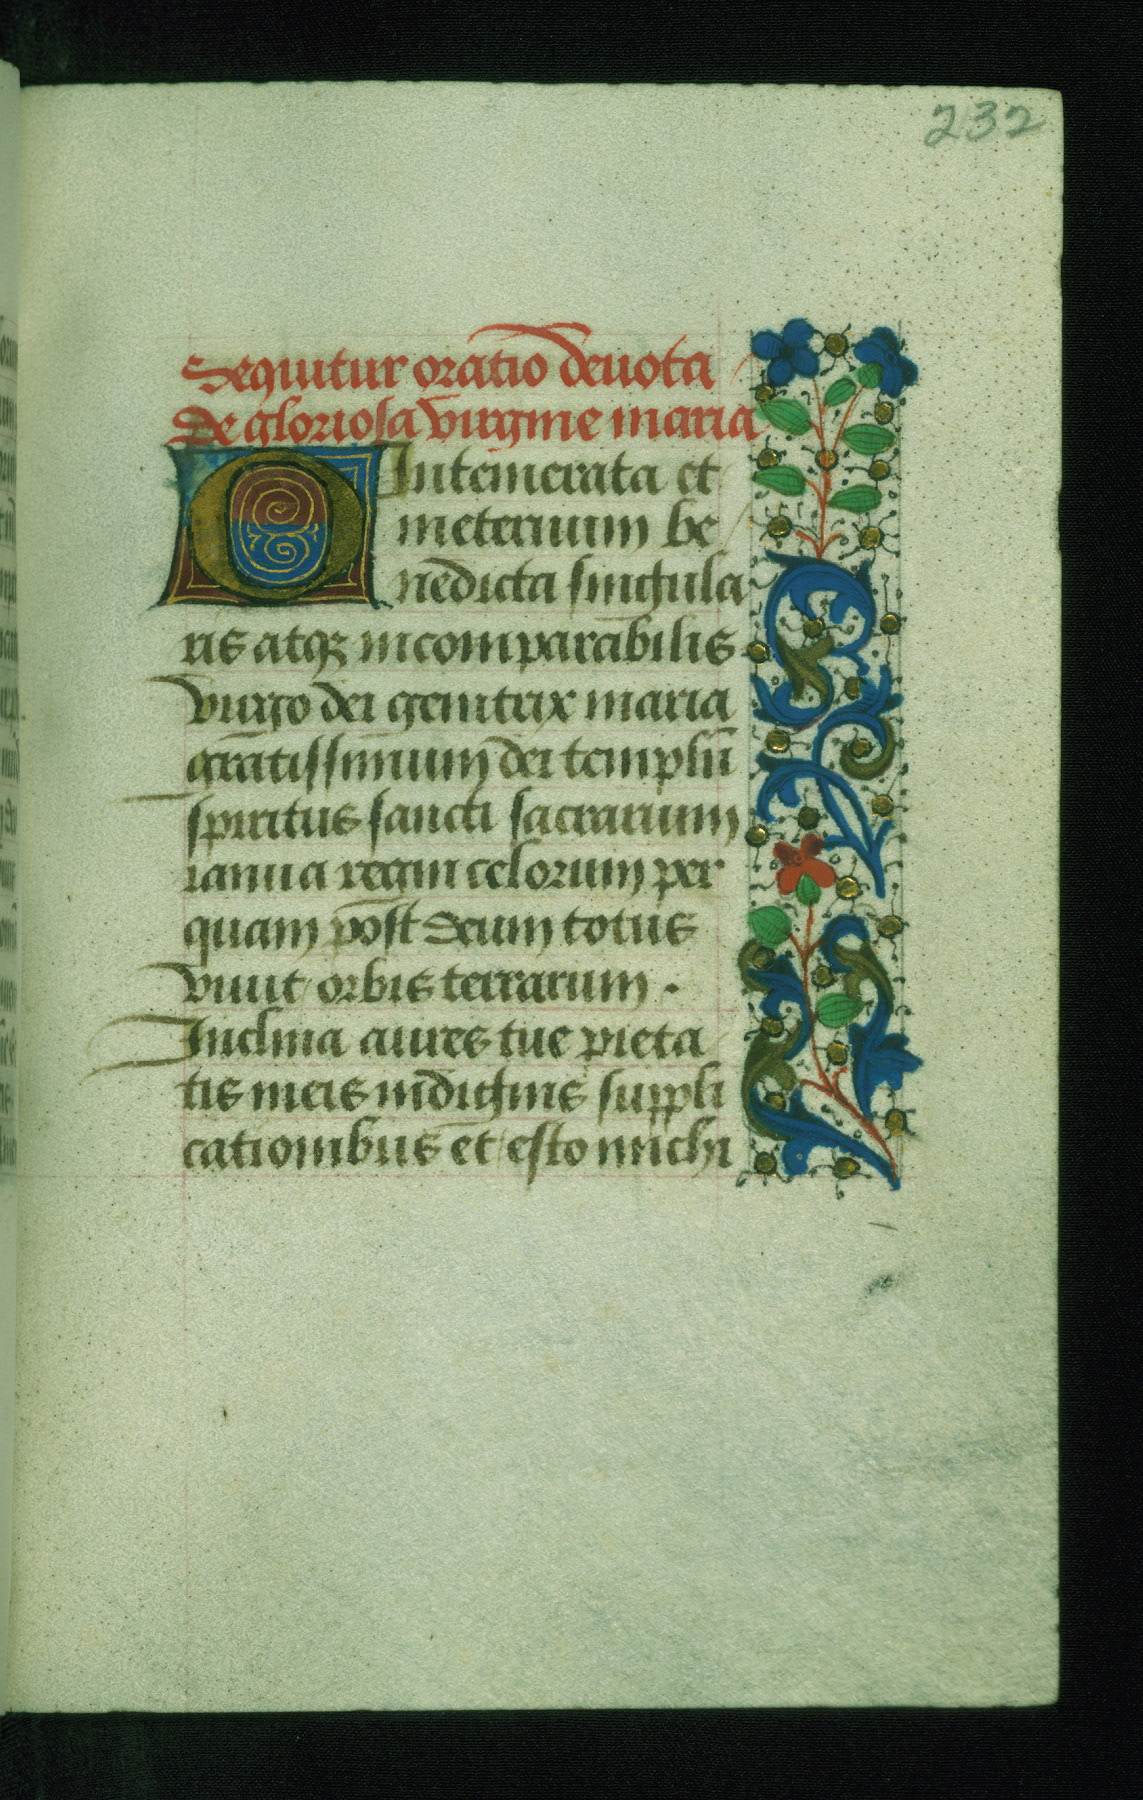 232
Sequitur oratio deuota
De gloriosa virgine maria
O Intemerata et
in eternum be
nedicta singula
ris atqz incomparabilis
virgo dei genitrix maria
gratissimum dei templū
spiritus sancti sacrarium
ianua regni celorum per
quam post deum totus
viuit orbis terrarum .
Inclina aures tue pieta
tis meis indignis suppli
cationibus et esto michi